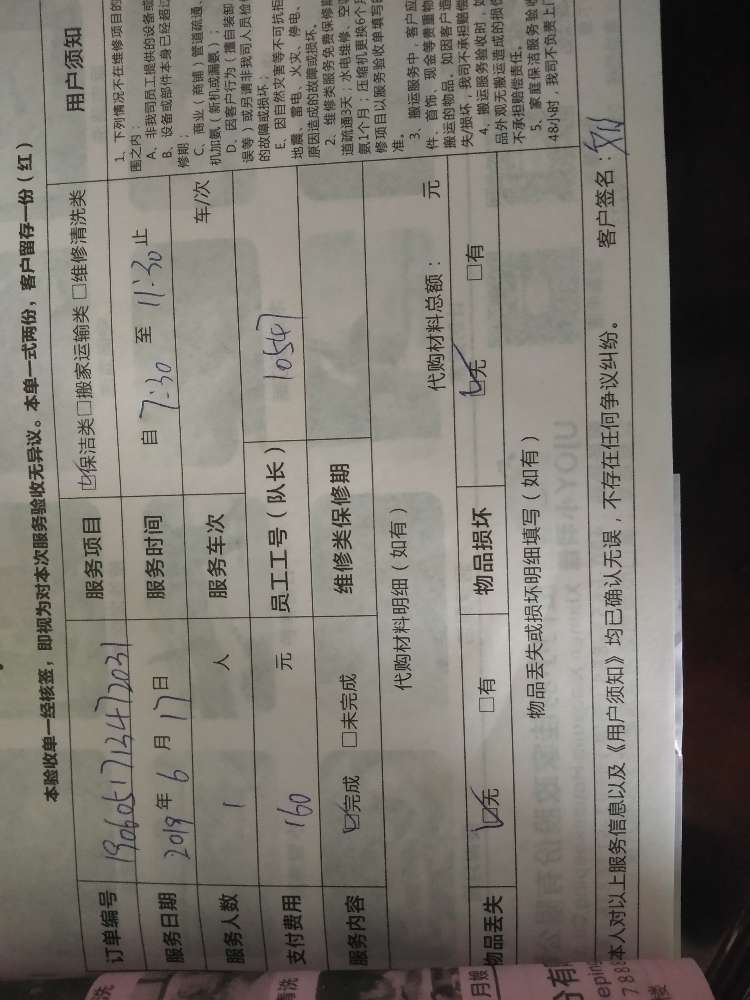 本验收单一经核签，即视为对本次服务验收无异议。本单一式两份，客户留存一份（红）
订单编号 1906051713472031 服务项目 ☑保洁类□搬家运输类□维修清洗类
服务日期 2019年6月17日 服务时间 自7:30至11:30止
服务人数 1 人 服务车次 车/次
支付费用 160 元 员工工号（队长） 10547
服务内容 ☑完成 □未完成 维修类保修期
代购材料明细（如有） 代购材料总额： 元
物品丢失 ☑无 □有 物品损坏 ☑无 □有
物品丢失或损坏明细填写（如有）
本人对以上服务信息以及《用户须知》均已确认无误，不存在任何争议纠纷。 客户签名：
用户须知
1、下列情况不在维修项目的
围之内：
A、非我司员工提供的设备或
B、设备或部件本身已经超过
修期；
C、商业（商铺）管道疏通、
机加氨（新机或漏氨）；
D、因客户行为（擅自装卸
误等）或另请非我司人员检
的故障或损坏；
E、因自然灾害等不可抗拒
地震、雷电、火灾、停电、
原因造成的故障或损坏。
2、维修类服务免费保修期
道疏通3天；水电维修、空
氨1个月；压缩机更换6个月
修项目以服务验收单填写
准。
3、搬运服务中，客户应
件、首饰、现金等贵重物
搬运的物品。如因客户造
失/损坏，我司不承担赔偿
4、搬运服务验收时，如
品外观无搬运造成的损
不承担赔偿责任。
5、家庭保洁服务验收
48小时，我司不负责上